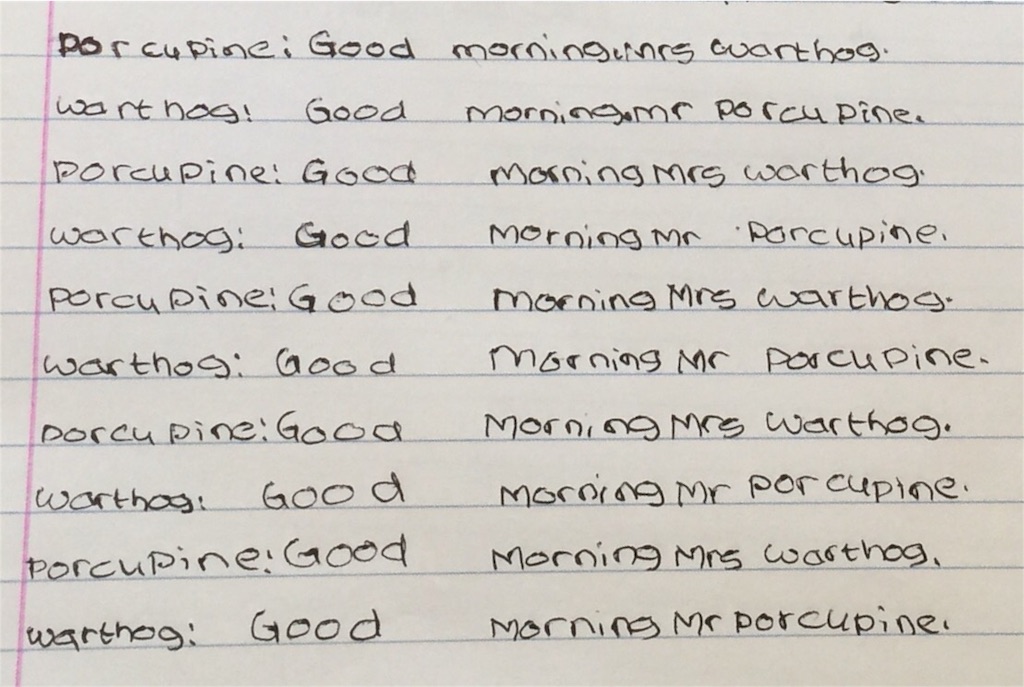 Porcupine: Good morning, mrs warthog.
warthog: Good morning, mr porcupine.
porcupine: Good morning Mrs warthog.
warthog: Good morning Mr porcupine.
porcupine: Good morning Mrs warthog.
warthog: Good morning Mr porcupine.
porcupine: Good Morning Mrs warthog.
warthog: Good morning Mr porcupine.
porcupine: Good Morning Mrs warthog.
warthog: Good morning Mr porcupine.